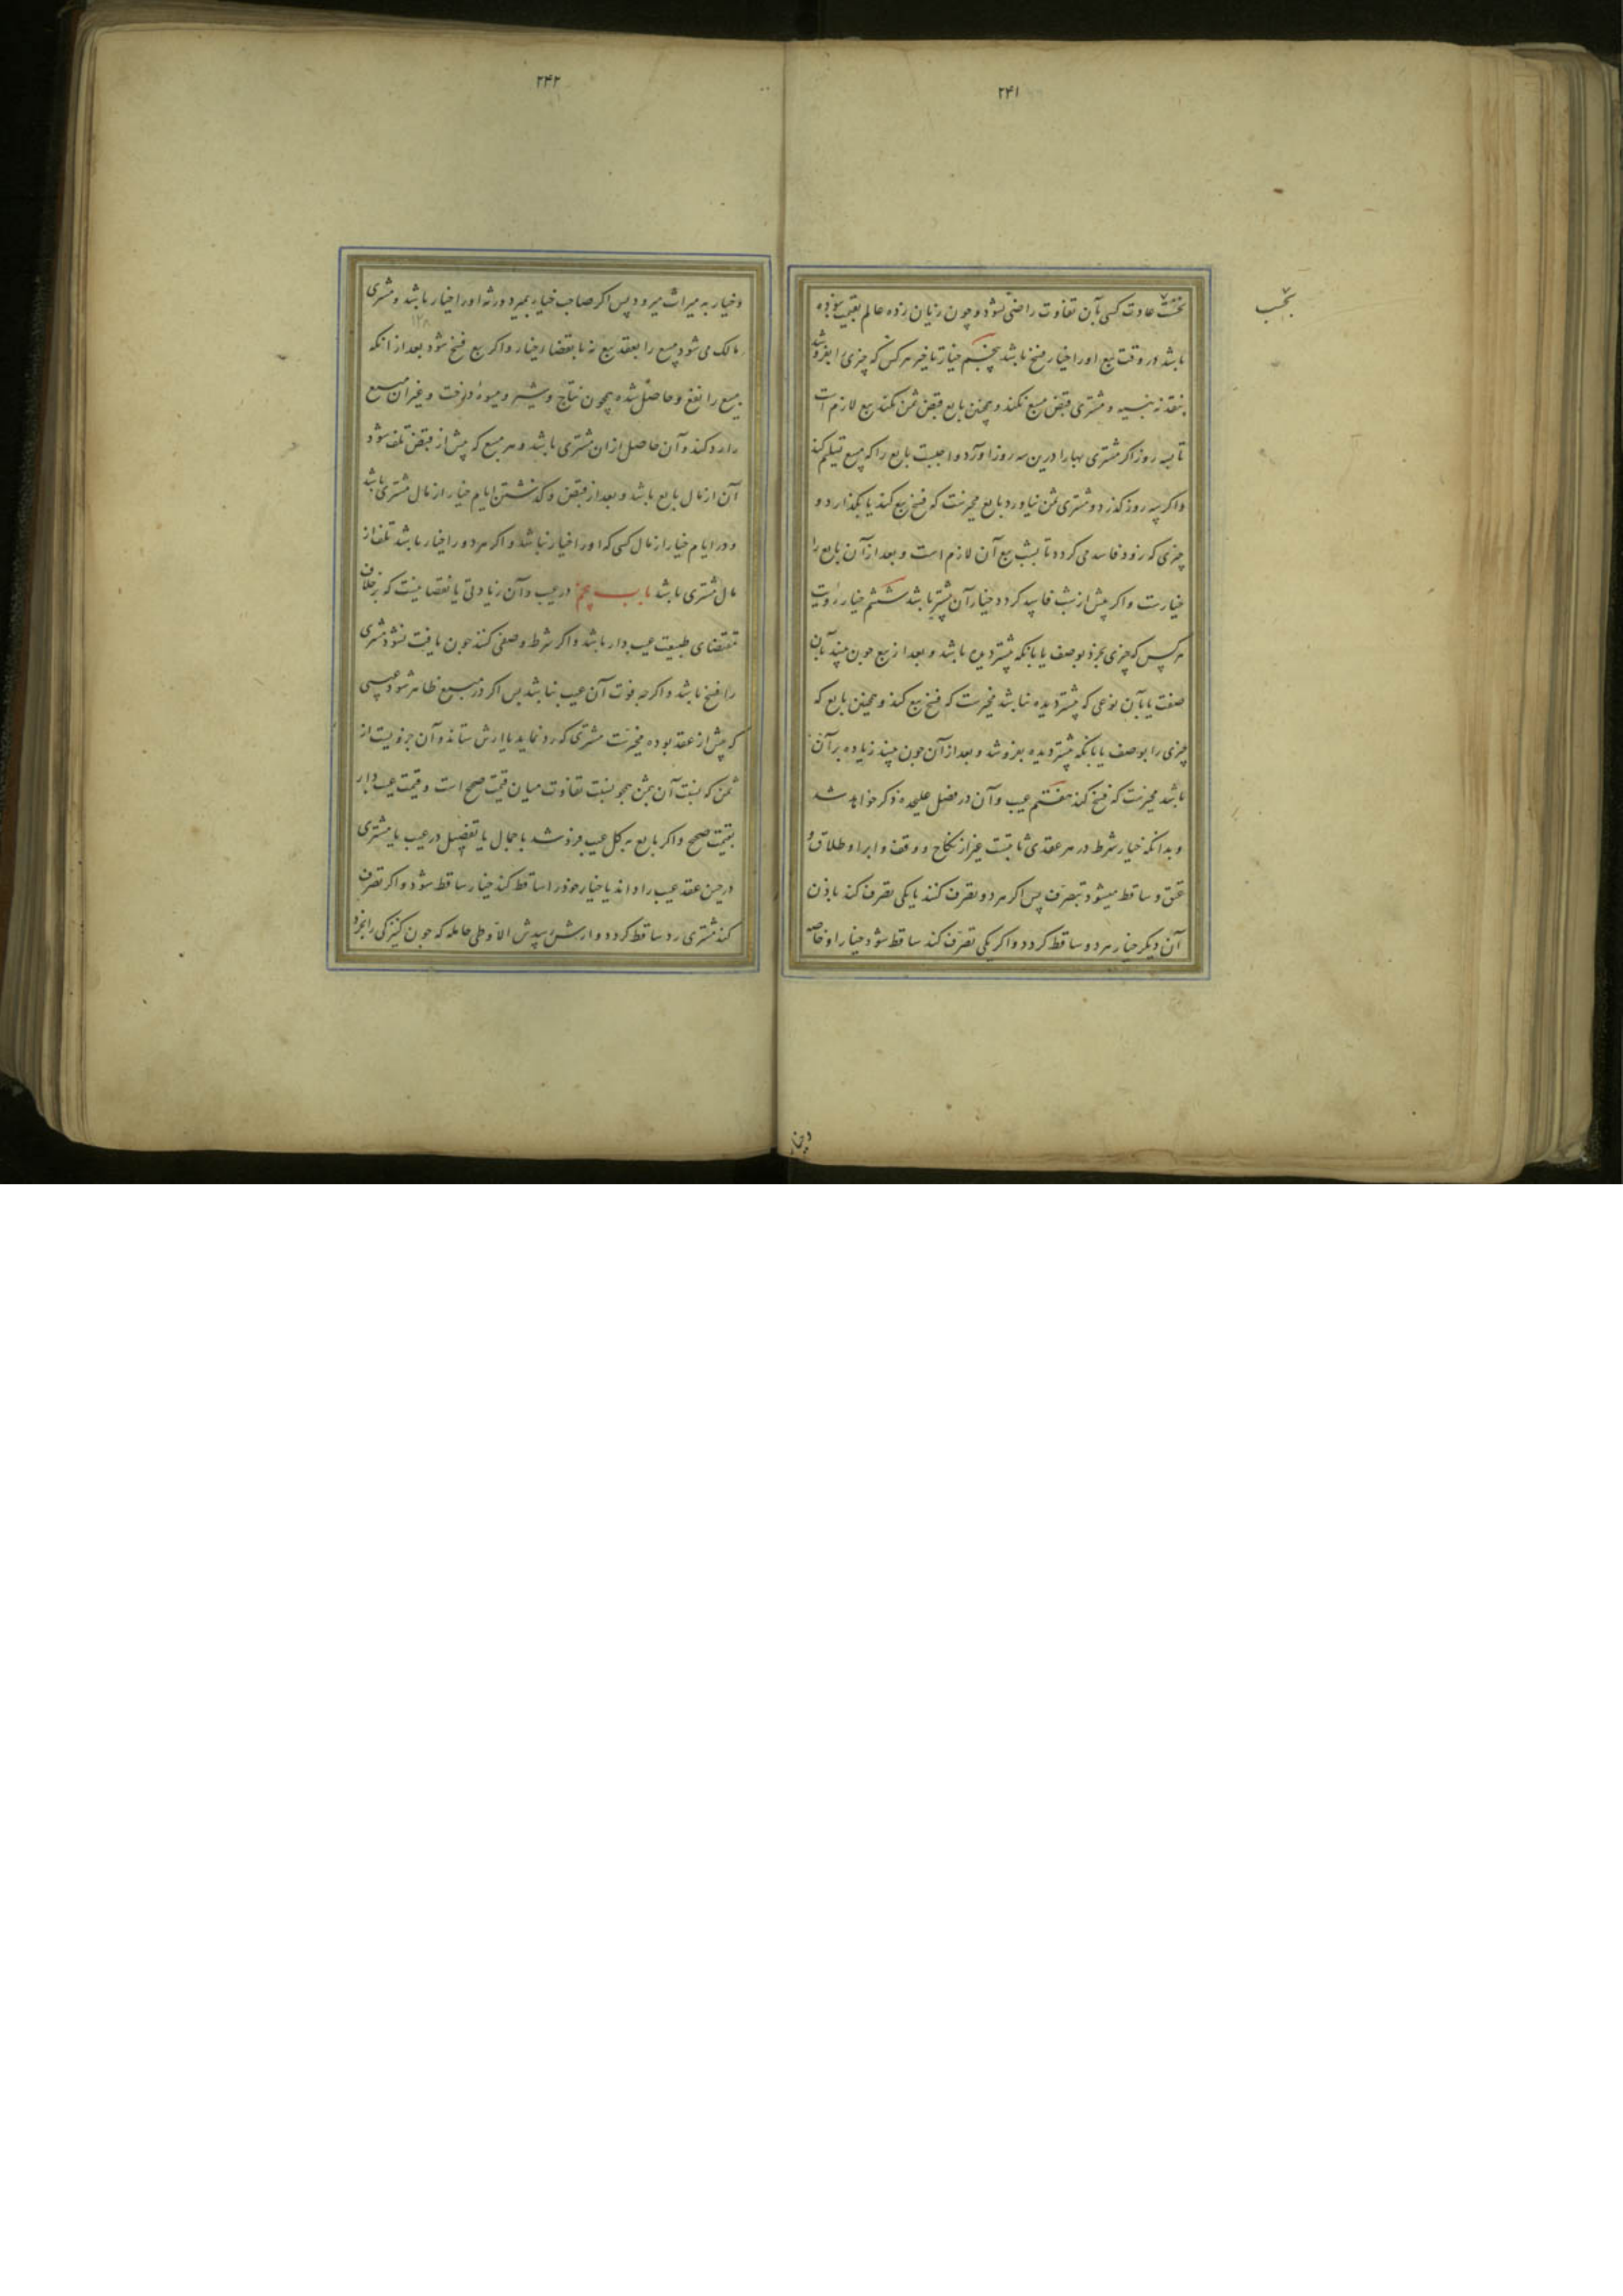 ۲۴۱
بحسب
بحسب عادت کسی بآن تفاوت راضی نشود و چون زیان زده عالم بقیمت نبوده
باشد در وقت بیع او را خیار فسخ باشد پنجم خیار تاخیر هر کس که چیزی را بفروشد
بنقد نه بنسیه و مشتری قبض مبیع نکند و همچنین بایع قبض ثمن نکند بیع لازم است
تا سه روز اگر مشتری بها را درین سه روز آورد واجبست بایع را که مبیع تسلیم کند
و اگر سه روز گذرد و مشتری ثمن نیاورد بایع مخیرست که فسخ بیع کند یا بگذارد و
چیزی که زود فاسد می گردد تا بشب بیع آن لازم است و بعد از آن بایع را
خیارست و اگر پیش از شب فاسد گردد خیار آن پیشتر باشد ششم خیار رؤیت
هر کس که چیزی بخرد بوصف یا بآنکه پیشتر دیده باشد و بعد از بیع چون بیند بآن
صفت یا بآن نوعی که پیشتر دیده نباشد مخیرست که فسخ بیع کند و همچنین بایع که
چیزی را بوصف یا بآنکه پیشتر دیده بفروشد و بعد از آن چون بیند زیاده بر آن
باشد مخیرست که فسخ کند هفتم عیب و آن در فصل علیحده ذکر خواهد شد
و بدانکه خیار شرط در هر عقدی ثابتست غیر از نکاح و وقف و ابرا و طلاق و
عتق و ساقط میشود بتصرف پس اگر هر دو تصرف کنند یا یکی تصرف کند باذن
آن دیگر خیار هر دو ساقط گردد و اگر یکی تصرف کند ساقط شود خیار او خاصه
۲۴۲
و خیار به میراث میرود پس اگر صاحب خیار بمیرد ورثه او را خیار باشد و مشتری
مالک می شود مبیع را بعقد بیع نه بانقضاء خیار و اگر بیع فسخ شود بعد از آنکه
مبیع را نفع و حاصل شده همچون نتاج و شیر و میوه درخت و غیر آن مبیع
را رد کند و آن حاصل از ان مشتری باشد و هر مبیع که پیش از قبض تلف شود
آن از مال بایع باشد و بعد از قبض و گذشتن ایام خیار از مال مشتری باشد
و در ایام خیار از مال کسی که او را خیار نباشد و اگر هر دو را خیار باشد تلف از
مال مشتری باشد باب پنجم در عیب و آن زیادتی یا نقصانیست که بر خلاف
مقتضای طبیعت عیب دار باشد و اگر شرط وصفی کنند چون یافت نشود مشتری
را فسخ باشد و اگرچه فوت آن عیب نباشد پس اگر در مبیع ظاهر شود عیبی
که پیش از عقد بوده مخیرست مشتری که رد نماید یا ارش ستاند و آن جزویست از
ثمن که نسبت آن بثمن همچو نسبت تفاوت میان قیمت صحیح است و قیمت عیب دار
بقیمت صحیح و اگر بایع به کل عیب فروشد باجمال یا تفصیل در عیب یا مشتری
در حین عقد عیب را داند یا خیار خود را ساقط کند خیار ساقط شود و اگر تصرف
کند مشتری رد ساقط گردد و ارش بیدش الا وطی حامله که چون کنیزکی را بخرد